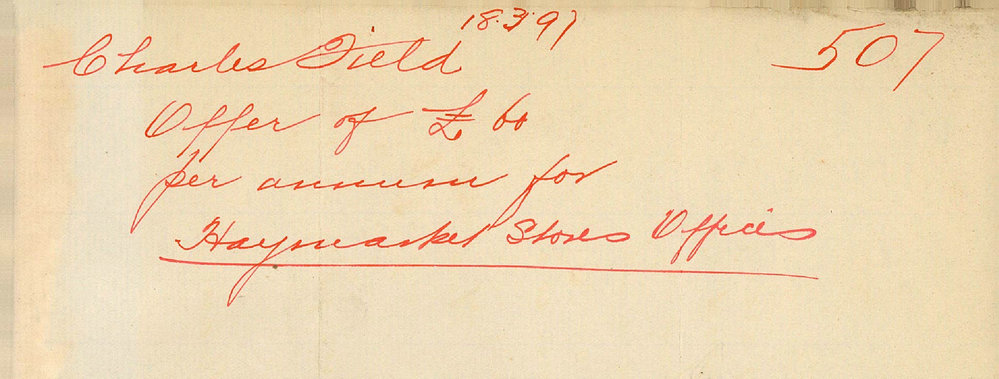 18.3.97
507
Charles Field
Offer of £60
per annum for
Haymarket Stores Offices